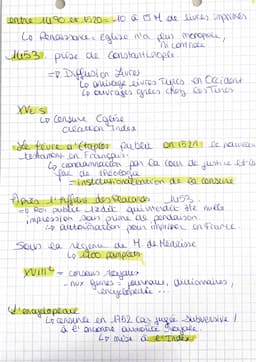 entre 1490 et 1520 = 10 à 15 M de livres imprimés
↳ Renaissance : Eglise n'a plus monopole,
ni contrôle
1453 prise de Constantinople
=> Diffusion livres
↳ arrivage livres Turcs en Occident
↳ ouvrages grecs chez les Turcs
XVe s
↳ censure Eglise
création Index
Le fèvre d'étaples publie en 1521 le nouveau
testament en Français.
↳ condamnation par la cour de justice et la
fac de théologie
= institutionnalisation de la censure
Après l'Affaire des Placards 1453
→ Roi publie l'édit qui interdit tte nvelle
impression sous peine de pendaison.
↳ autorisation pour imprimer en France.
Sous la régence de M. de Médicis
↳ 1200 pamplets
XVIIIe = censeurs royaux
- nvx genres : journaux, dictionnaires,
encyclopédie...
L'encyclopédie
↳ censurée en 1752 car jugée subversive /
à l'encontre autorité Royale.
↳ mise à l'Index